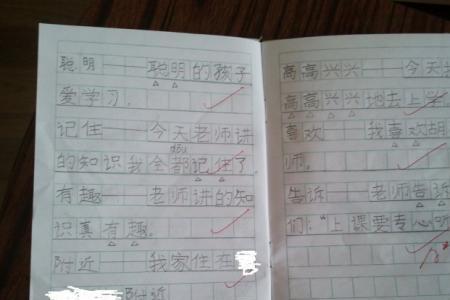 聪明 聪明的孩子
爱学习。
记住 今天老师讲
的知识我全都记住了
有趣 老师讲的知
识真有趣。
附近 我家住在
附近
高高兴兴 今天
高高兴兴地去上学
喜欢 我喜欢胡
师。
告诉 老师告诉
们:“上课要专心听